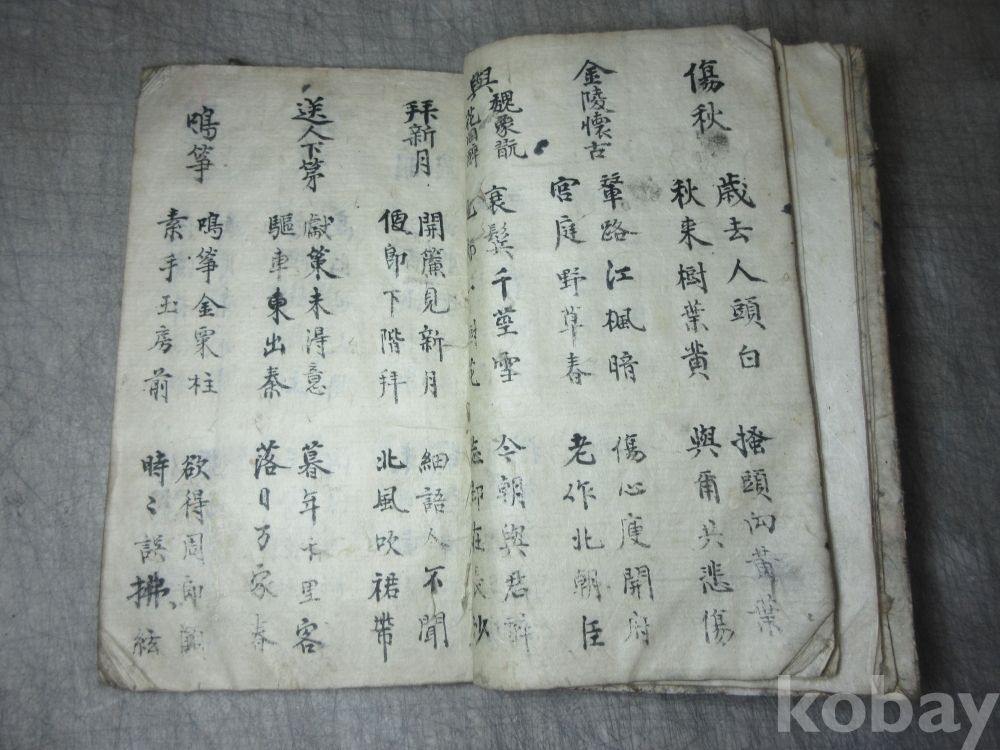 傷秋
歲去人頭白
搔頭向黃葉
秋來樹葉黃
與爾共悲傷
金陵懷古
輦路江楓暗
傷心庾開府
宮庭野草春
老作北朝臣
與
衰鬢千莖雪
今朝與君醉
樹花
拜新月
開簾見新月
細語人不聞
便即下階拜
北風吹裙帶
送人下第
獻策未得意
暮年千里客
驅車東出秦
落日万家春
鳴箏
鳴箏金粟柱
欲得周郎顧
素手玉房前
時〻誤拂絃
kobay